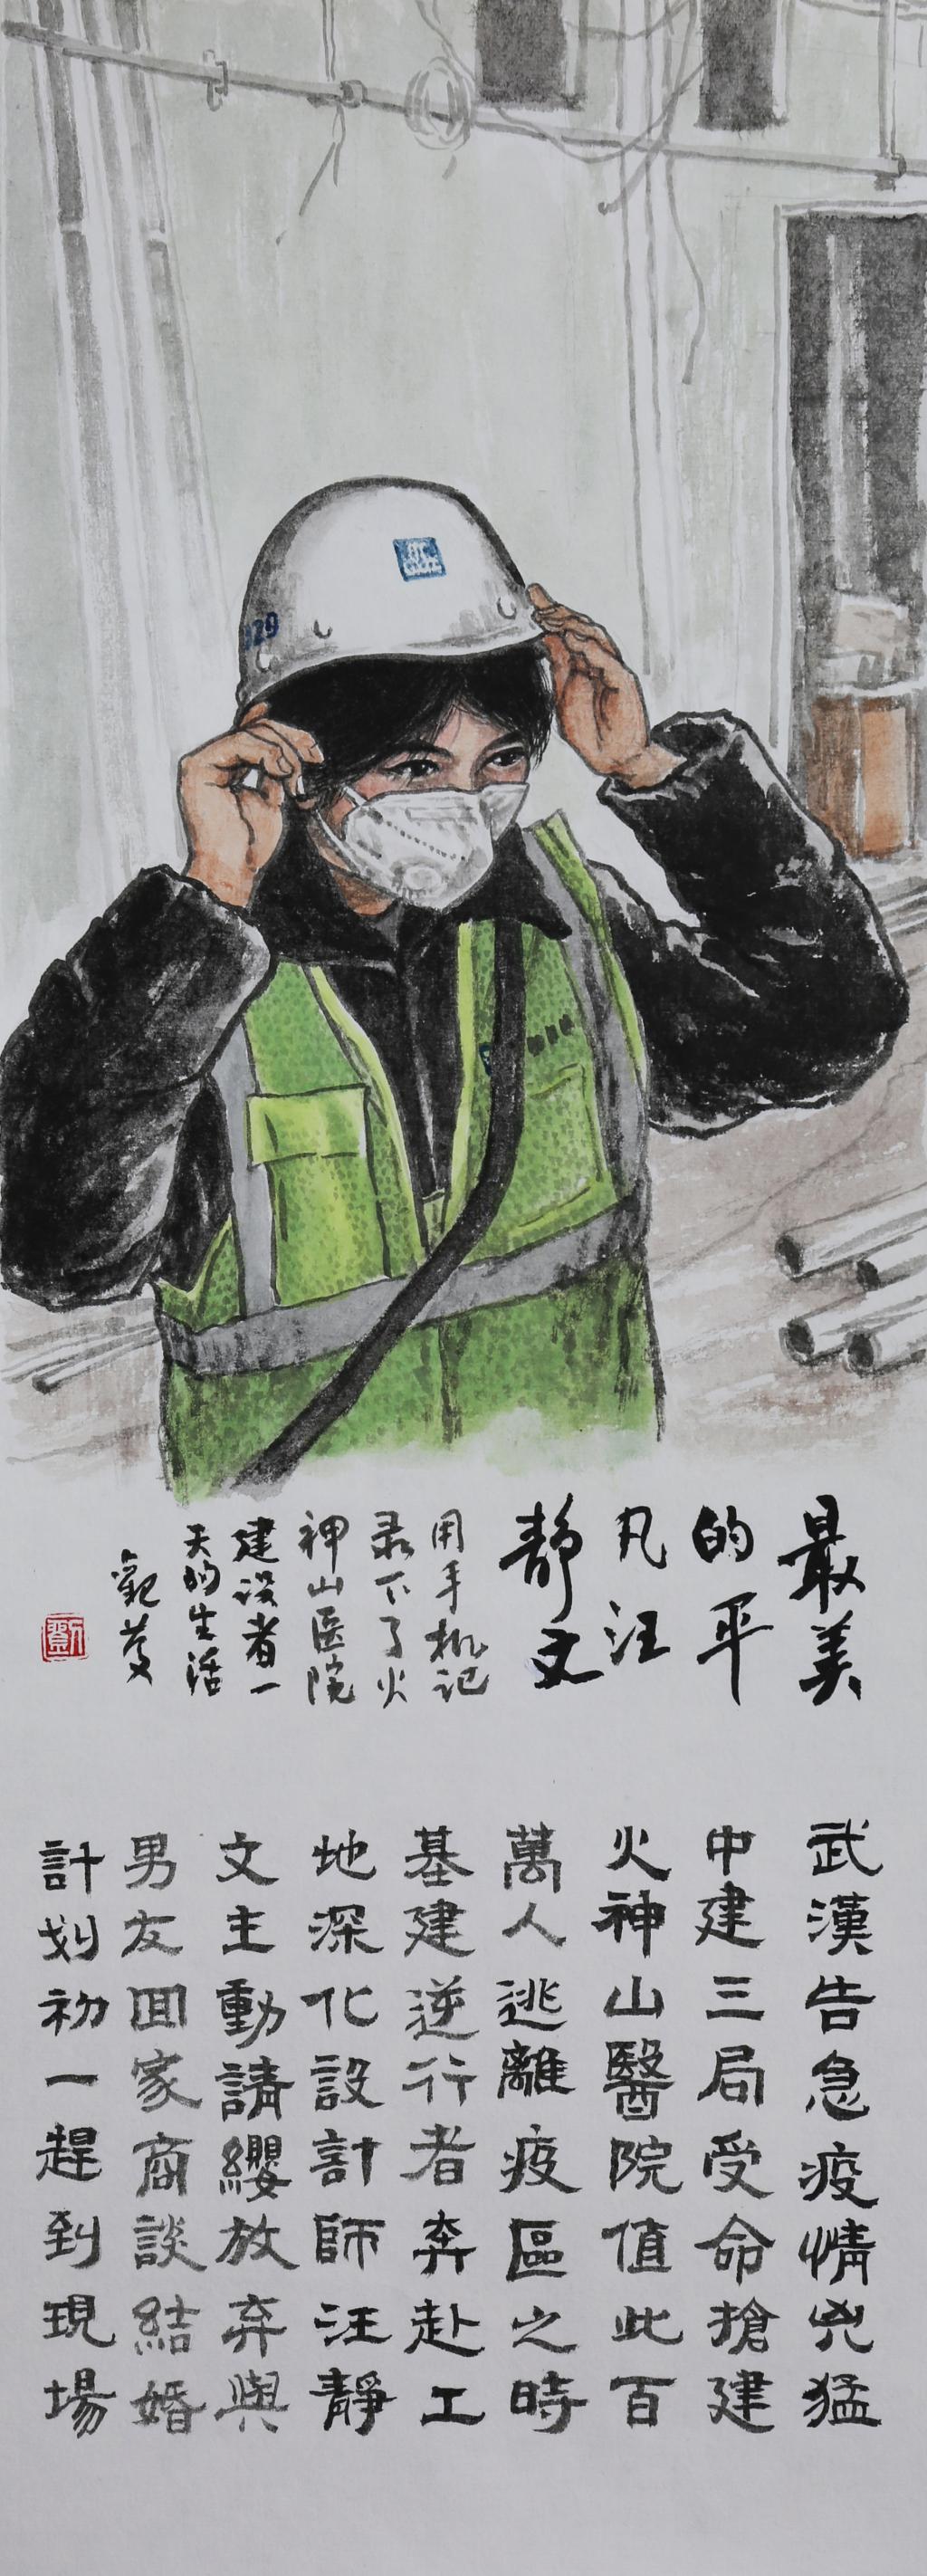 129
最美
的平
凡汪
静文
用手机记
录下了火
神山医院
建设者一
天的生活
觀
劉
武漢告急疫情兇猛
中建三局受命搶建
火神山醫院值此百
萬人逃離疫區之時
基建逆行者奔赴工
地深化設計師汪靜
文主動請纓放弃與
男友回家商談結婚
計划初一趕到現場